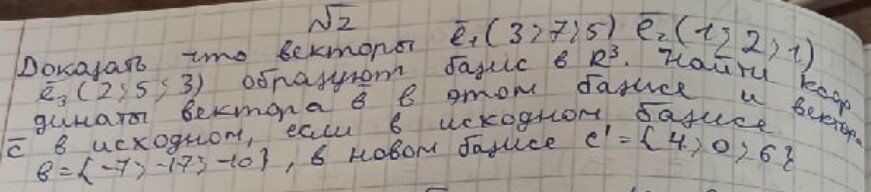 √2
Доказать что векторы ē₁(3;7;5) ē₂(1;2;1)
ē₃(2;5;3) образуют базис в R³. Найти коор
динаты вектора в̄ в этом базисе и вектора
c̄ в исходном, если в исходном базисе
в={-7;-17;-10}, в новом базисе c'={4;0;6}